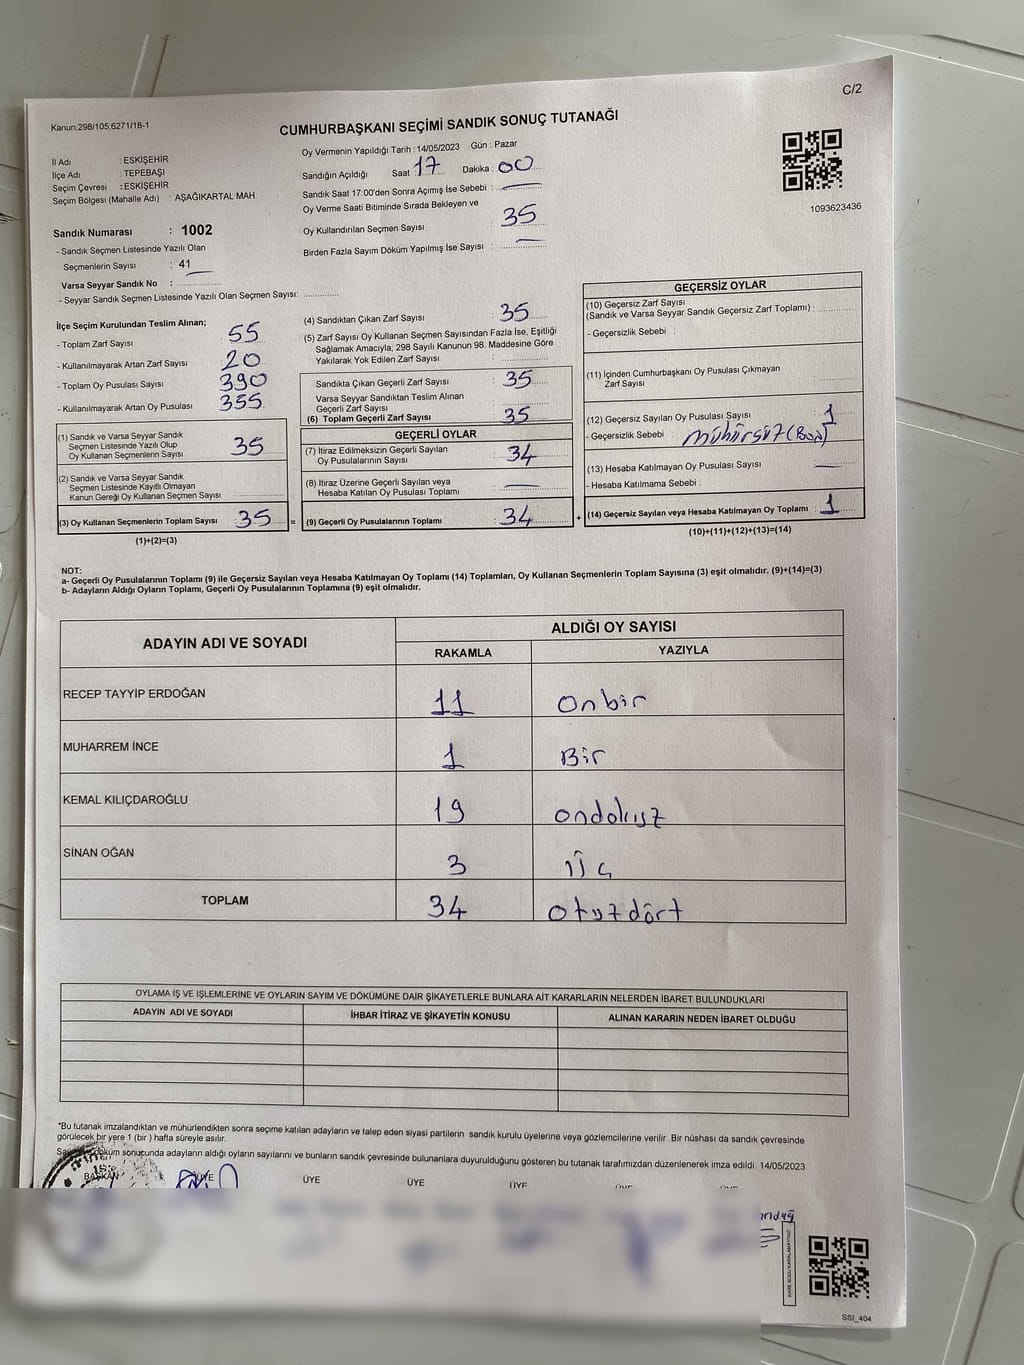 C/2
Kanun:298/105;6271/18-1
CUMHURBAŞKANI SEÇİMİ SANDIK SONUÇ TUTANAĞI
İl Adı : ESKİŞEHİR
İlçe Adı : TEPEBAŞI
Seçim Çevresi : ESKİŞEHİR
Seçim Bölgesi (Mahalle Adı) : AŞAĞIKARTAL MAH
Sandık Numarası : 1002
- Sandık Seçmen Listesinde Yazılı Olan
Seçmenlerin Sayısı : 41
Varsa Seyyar Sandık No :
- Seyyar Sandık Seçmen Listesinde Yazılı Olan Seçmen Sayısı:
Oy Vermenin Yapıldığı Tarih : 14/05/2023 Gün : Pazar
Sandığın Açıldığı Saat : 17 Dakika : 00
Sandık Saat 17:00'den Sonra Açımış İse Sebebi : —
Oy Verme Saati Bitiminde Sırada Bekleyen ve
Oy Kullandırılan Seçmen Sayısı : 35
Birden Fazla Sayım Döküm Yapılmış İse Sayısı : —
1093623436
İlçe Seçim Kurulundan Teslim Alınan;
- Toplam Zarf Sayısı : 55
- Kullanılmayarak Artan Zarf Sayısı : 20
- Toplam Oy Pusulası Sayısı : 390
- Kullanılmayarak Artan Oy Pusulası : 355
(1) Sandık ve Varsa Seyyar Sandık
Seçmen Listesinde Yazılı Olup
Oy Kullanan Seçmenlerin Sayısı : 35
(2) Sandık ve Varsa Seyyar Sandık
Seçmen Listesinde Kayıtlı Olmayan
Kanun Gereği Oy Kullanan Seçmen Sayısı :
(3) Oy Kullanan Seçmenlerin Toplam Sayısı : 35
(1)+(2)=(3)
=
(4) Sandıktan Çıkan Zarf Sayısı : 35
(5) Zarf Sayısı Oy Kullanan Seçmen Sayısından Fazla İse, Eşitliği
Sağlamak Amacıyla; 298 Sayılı Kanunun 98. Maddesine Göre
Yakılarak Yok Edilen Zarf Sayısı :
Sandıkta Çıkan Geçerli Zarf Sayısı : 35
Varsa Seyyar Sandıktan Teslim Alınan
Geçerli Zarf Sayısı :
(6) Toplam Geçerli Zarf Sayısı : 35
GEÇERLİ OYLAR
(7) İtiraz Edilmeksizin Geçerli Sayılan
Oy Pusulalarının Sayısı : 34
(8) İtiraz Üzerine Geçerli Sayılan veya
Hesaba Katılan Oy Pusulası Toplamı : —
(9) Geçerli Oy Pusulalarının Toplamı : 34
+
GEÇERSİZ OYLAR
(10) Geçersiz Zarf Sayısı
(Sandık ve Varsa Seyyar Sandık Geçersiz Zarf Toplamı) :
- Geçersizlik Sebebi :
(11) İçinden Cumhurbaşkanı Oy Pusulası Çıkmayan
Zarf Sayısı :
(12) Geçersiz Sayılan Oy Pusulası Sayısı : 1
- Geçersizlik Sebebi : mühürsüz (Boş)
(13) Hesaba Katılmayan Oy Pusulası Sayısı : —
- Hesaba Katılmama Sebebi :
(14) Geçersiz Sayılan veya Hesaba Katılmayan Oy Toplamı : 1
(10)+(11)+(12)+(13)=(14)
NOT:
a- Geçerli Oy Pusulalarının Toplamı (9) ile Geçersiz Sayılan veya Hesaba Katılmayan Oy Toplamı (14) Toplamları, Oy Kullanan Seçmenlerin Toplam Sayısına (3) eşit olmalıdır. (9)+(14)=(3)
b- Adayların Aldığı Oyların Toplamı, Geçerli Oy Pusulalarının Toplamına (9) eşit olmalıdır.
ADAYIN ADI VE SOYADI
ALDIĞI OY SAYISI
RAKAMLA YAZIYLA
RECEP TAYYİP ERDOĞAN 11 onbir
MUHARREM İNCE 1 Bir
KEMAL KILIÇDAROĞLU 19 ondokuz
SİNAN OĞAN 3 üç
TOPLAM 34 otuzdört
OYLAMA İŞ VE İŞLEMLERİNE VE OYLARIN SAYIM VE DÖKÜMÜNE DAİR ŞİKAYETLERLE BUNLARA AİT KARARLARIN NELERDEN İBARET BULUNDUKLARI
ADAYIN ADI VE SOYADI İHBAR İTİRAZ VE ŞİKAYETİN KONUSU ALINAN KARARIN NEDEN İBARET OLDUĞU
*Bu tutanak imzalandıktan ve mühürlendikten sonra seçime katılan adayların ve talep eden siyasi partilerin sandık kurulu üyelerine veya gözlemcilerine verilir .Bir nüshası da sandık çevresinde
görülecek bir yere 1 (bir ) hafta süreyle asılır.
döküm sonucunda adayların aldığı oyların sayılarını ve bunların sandık çevresinde bulunanlara duyurulduğunu gösteren bu tutanak tarafımızdan düzenlenerek imza edildi. 14/05/2023
BAŞKAN ÜYE ÜYE ÜYE ÜYE
SSI_404